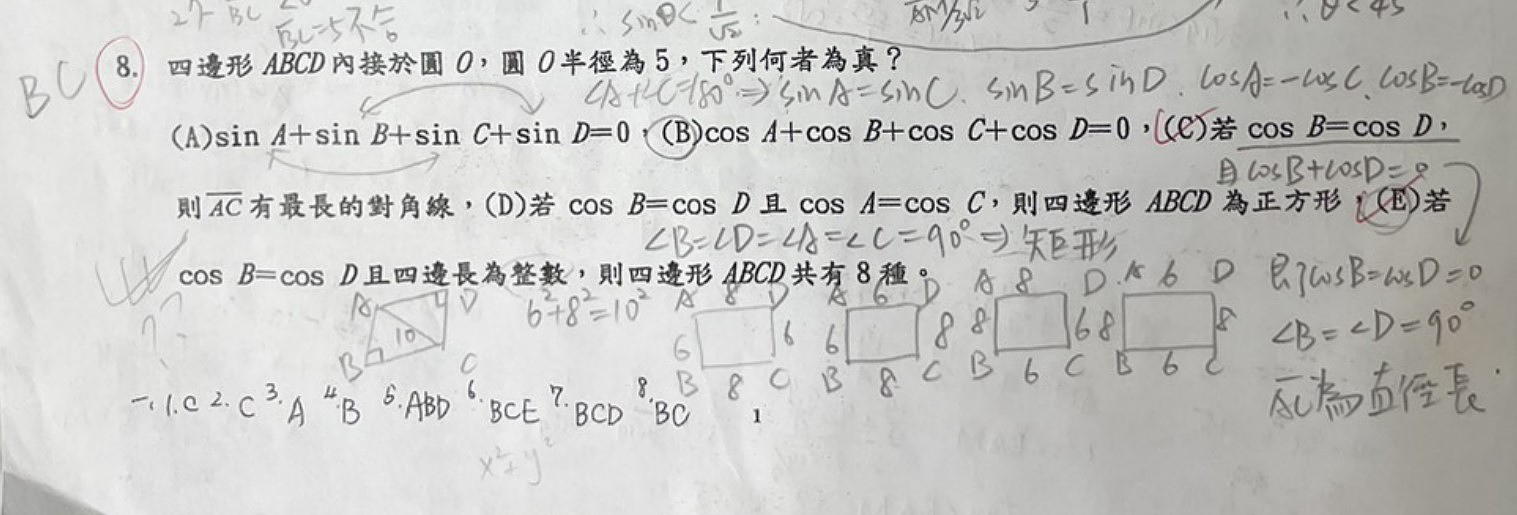 BC=5不合
∴ sinθ< 1/√2
∴ θ<45
BC
8. 四邊形 ABCD 內接於圓 O，圓 O 半徑為 5，下列何者為真？
∠A+∠C=180°⇒sinA=sinC. sinB=sinD. cosA=-cosC. cosB=-cosD
(A)sin A+sin B+sin C+sin D=0，(B)cos A+cos B+cos C+cos D=0，(C)若 cos B=cos D，
且cosB+cosD=0
則 AC 有最長的對角線，(D)若 cos B=cos D 且 cos A=cos C，則四邊形 ABCD 為正方形，(E)若
∠B=∠D=∠A=∠C=90°⇒矩形
cos B=cos D 且四邊長為整數，則四邊形 ABCD 共有 8 種。
A D 10 B C
6²+8²=10²
A 8 D
6 6
B 8 C
A 6 D
6 8
B 8 C
A 8 D
8 6
B 6 C
A 6 D
8 8
B 6 C
只有cosB=cosD=0
∠B=∠D=90°
AC為直徑長
??
一、1.C 2.C 3.A 4.B 5.ABD 6.BCE 7.BCD 8.BC
1
x²+y²